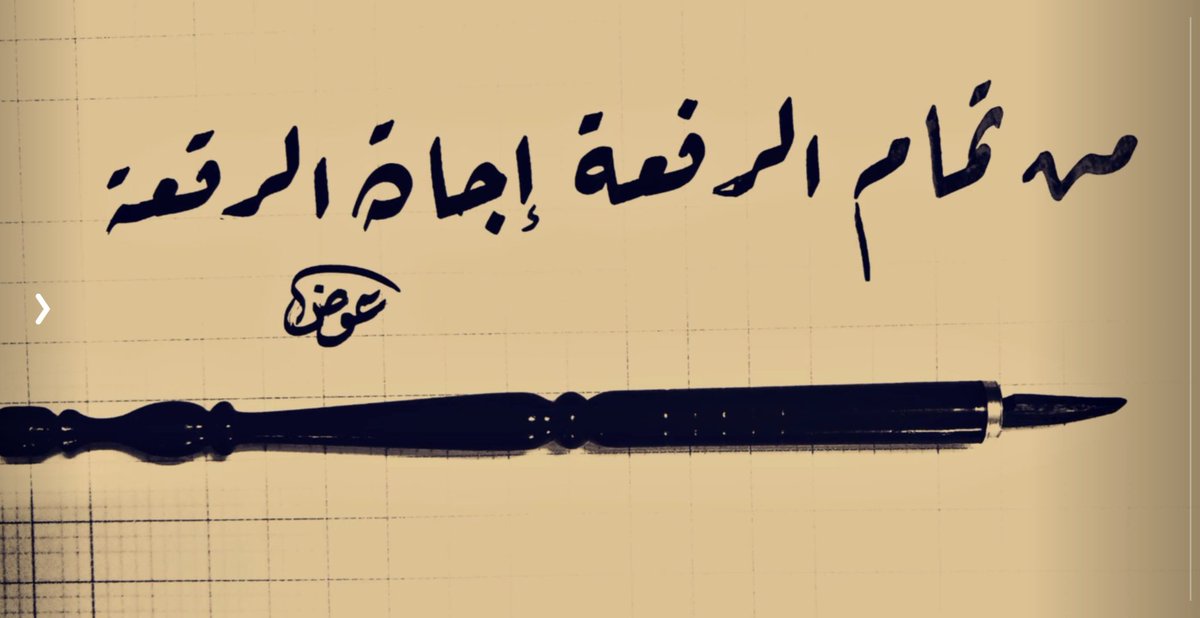 من تمام الرفعة إجادة الرقعة
عوض